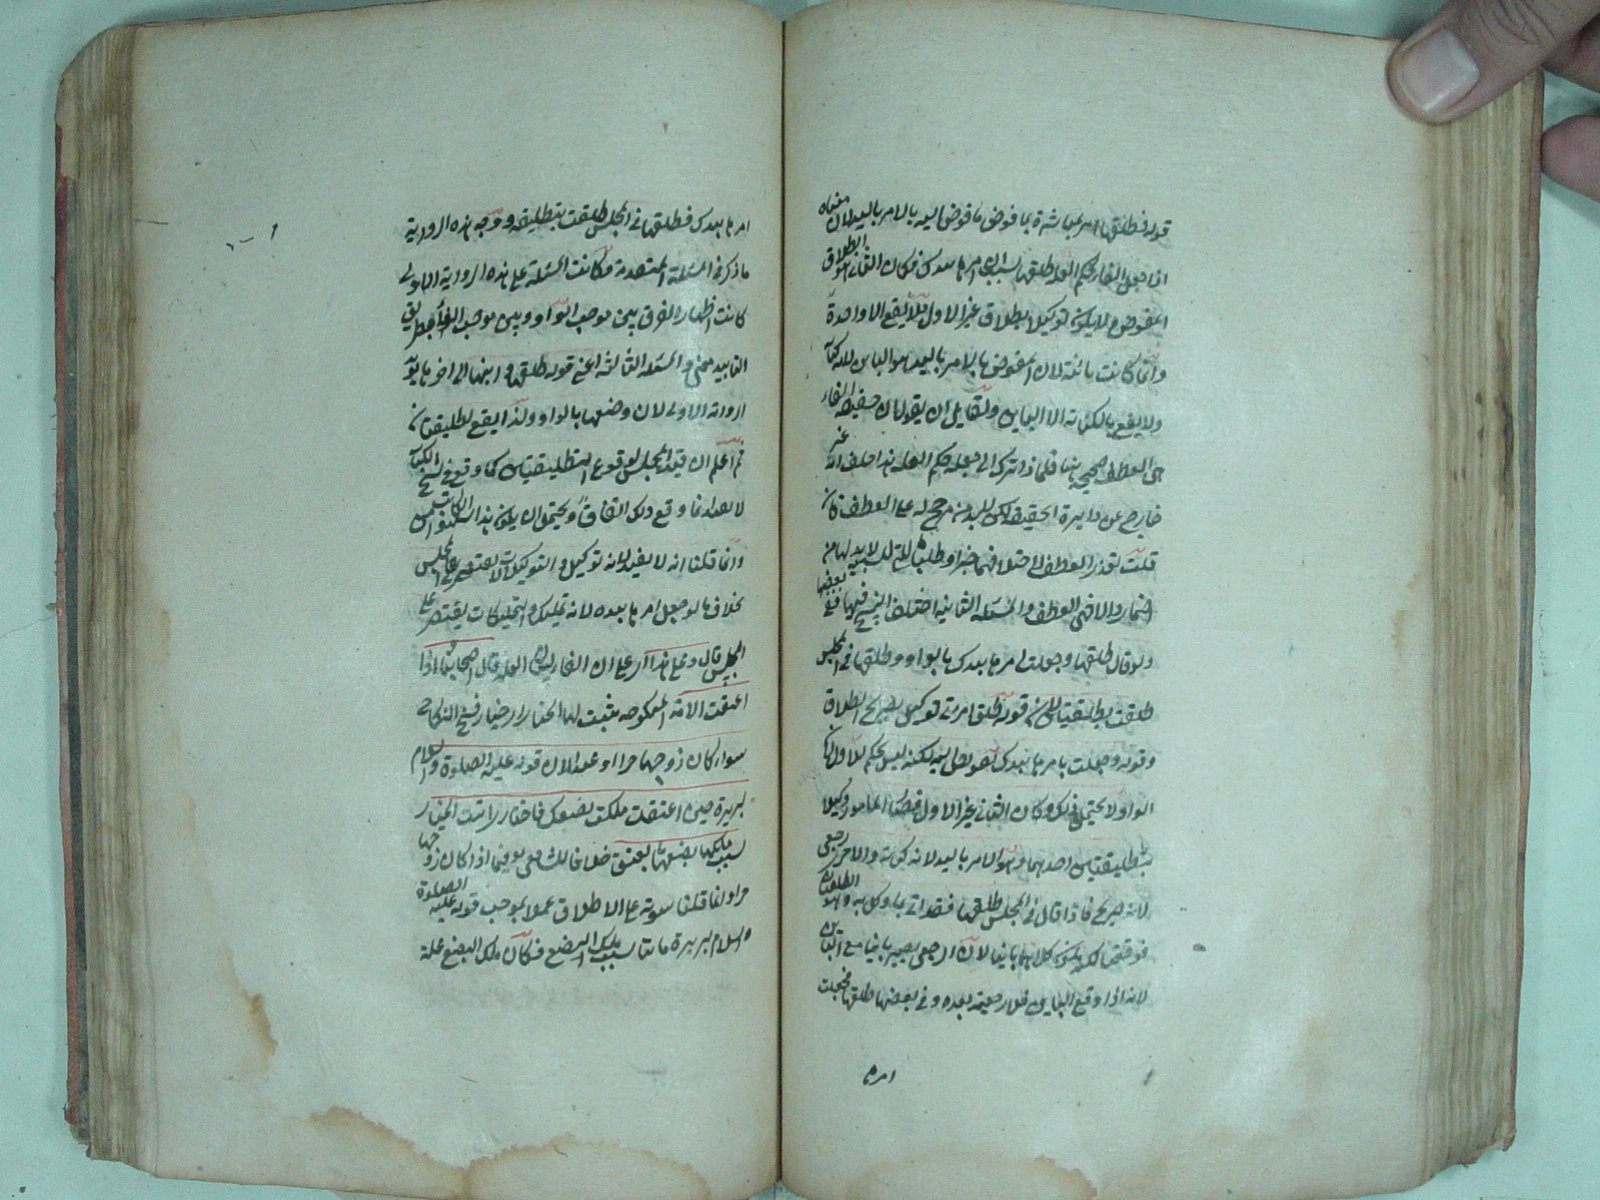 قوله فطلقها امر مباشرة بما فوض فوض اليه بالامر باليد لان معناه
اذا جعل الفاء بحكم العلة طلقها بسبب ان امرها بيدك فكان الثاني هو الطلاق
المفوض ولا يكون توكيلا بطلاق غير الاول فلا يقع الا واحدة
وانما كانت بائنة لان المفوض بالامر باليد هو البائن لانه كناية
ولا يقع بالكناية الا البائن ولقائل ان يقول ان حقيقة الفاء
هي العطف صحيحة هنا فلماذا ترك الى جعله حكم العلة
خارج عن دايرة الحقيقة لكن لا بد من مرجح له على العطف فان
قلت تعذر العطف لاختلافهما خبرا وطلبا قلت لا بد لها من
اضمار والا فهي العطف والمسئلة الثانية اختلف النسخ فيها ففي بعضها
ولو قال طلقها وجعلت امرها بيدك بالواو وطلقها في المجلس
طلقت تطليقتين لان قوله طلق امرأتي توكيل بصريح الطلاق
وقوله وجعلت امرها بيدك تفويض اليه لكنه ليس بحكم للاول لان
الواو لا يحتمل ذلك وكان الثاني غير الاول فصار المأمور وكيلا
بتطليقتين احدهما وهو الامر باليد لانه كناية والاخر رجعي
لانه صريح فاذا قال في المجلس طلقتها فقد اتى بما وكل به الطلقتان
فوقعتا لكن يكون كلاهما بائنا لان الرجعي يصير بائنا مع البائن
لانه اذا وقع البائن فلا رجعية بعده وفي بعضها طلقها فجعلت
امرها
امرها بيدك فطلقها في المجلس طلقت بتطليقة ووجه هذه الرواية
ما ذكر في المسئلة المتقدمة وكانت المسئلة على هذه الرواية الاولى
كانت اظهار الفرق بين موجب الواو وبين موجب الفاء بطريق
التاييد معنى والمسئلة الثالثة اعني قوله طلقها وابنها الى اخره
الرواية الاولى لان وضعها بالواو ولذا يقع تطليقتان
ثم اعلم ان قيد المجلس لوقوع التطليقتين كما وقع في نسخ الكتاب
وقع ذلك اتفاقا ويحتمل ان يكون هذا سهوا من الكاتب
وانما قلنا انه لا يفيد لانه توكيل والتوكيلات لا تقتصر على المجلس
بخلاف ما لو جعل امرها بيده لانه تمليك والتمليكات يقتصر على
المجلس قال وعلى هذا اي على ان الفاء لبيان العلة قال اصحابنا اذا
اعتقت الامة المنكوحة يثبت لها الخيار اي خيار فسخ النكاح
سواء كان زوجها حرا او عبدا لان قوله عليه الصلوة والسلام
لبريرة حين اعتقت ملكت بضعك فاختاري اثبت الخيار
بسبب ملكها بضعها بالعتق خلافا للشافعي فيما اذا كان زوجها
حرا وانما قلنا بثبوته على الاطلاق عملا بموجب قوله عليه الصلوة
والسلام لبريرة بسبب ملك البضع فكان ملك البضع علة